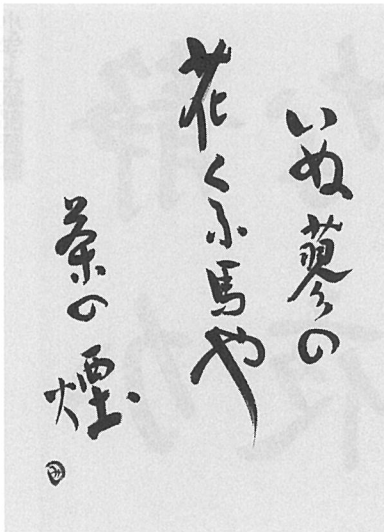 いぬ蓼の
花くふ馬や
茶の煙